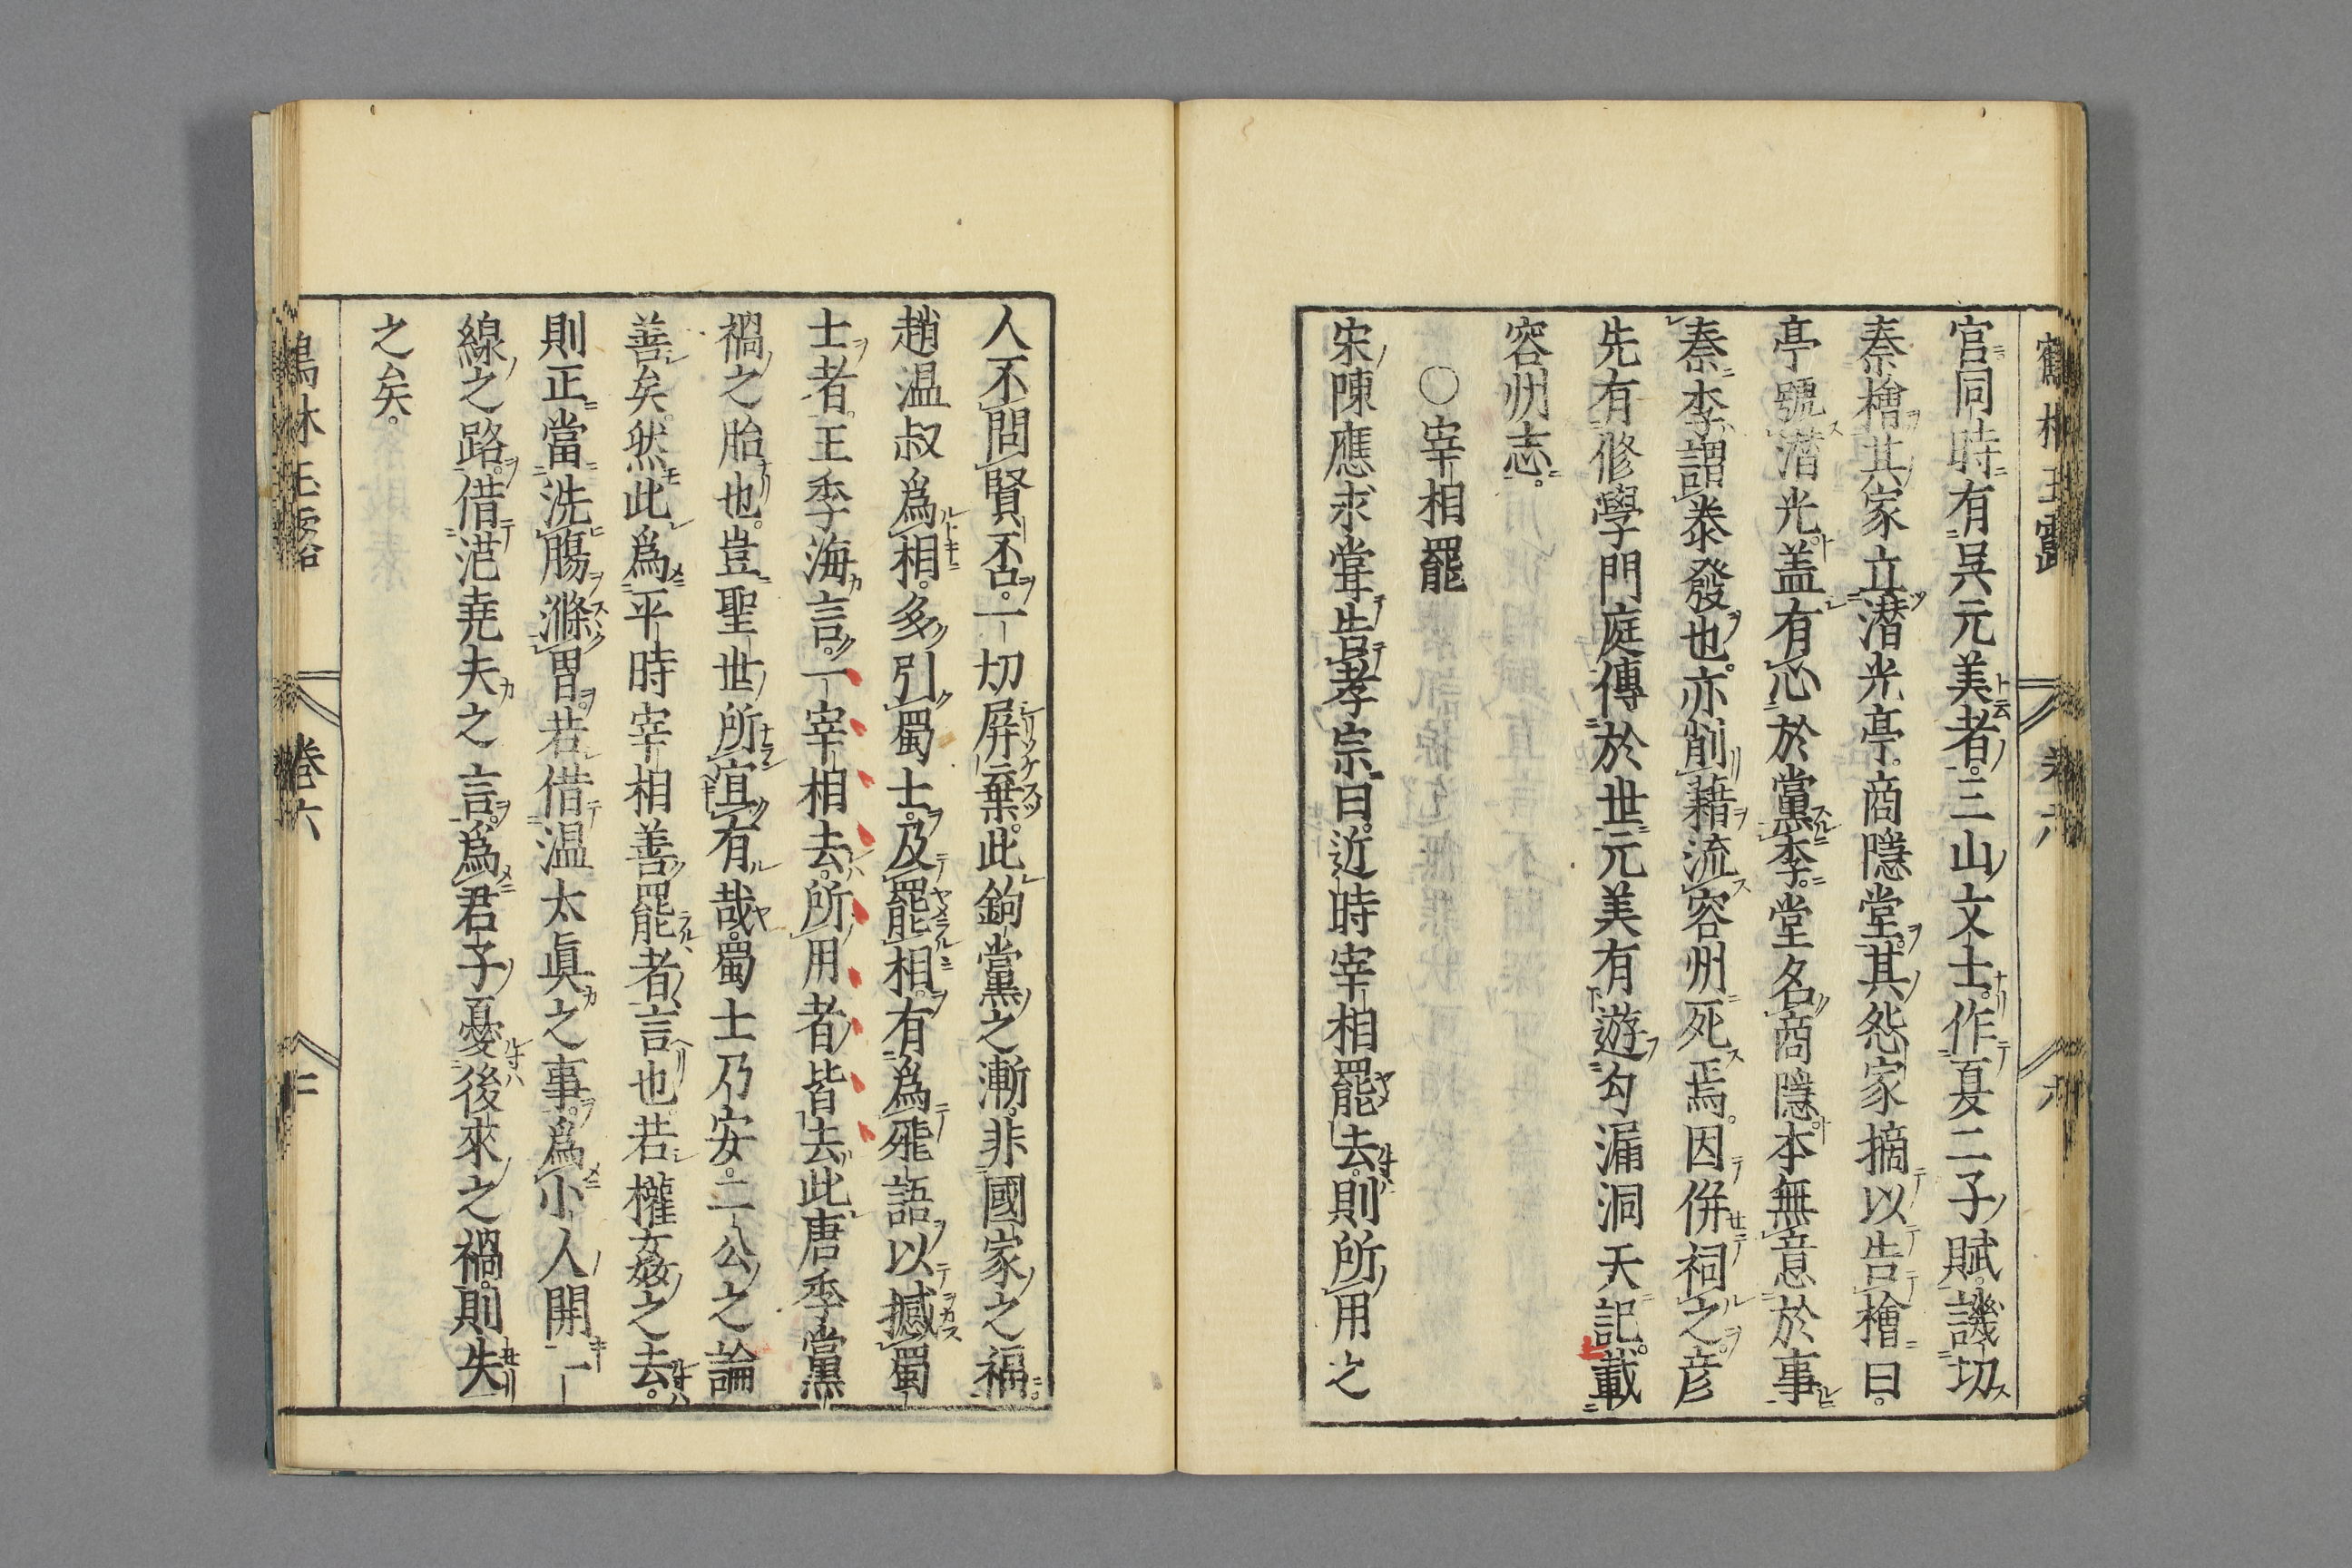 鶴林玉露 卷六
官同時有吳元美者三山文士作夏二子賦譏切
秦檜其家立潛光亭商隱堂其怨家摘以告檜曰
亭號潛光盖有心於黨李堂名商隱本無意於事
秦李謂泰發也亦削藉流容州死焉因併祠之彦
先有修學門庭傳於世元美有遊勾漏洞天記載
容州志
○宰相罷
宋陳應求嘗告孝宗曰近時宰相罷去則所用之
人不問賢否一切屏棄此鉤黨之漸非國家之福
趙温叔爲相多引蜀士及罷相有爲飛語以撼蜀
士者王季海言一宰相去所用者皆去此唐季黨
禍之胎也豈聖世所宜有哉蜀士乃安二公之論
善矣然此爲平時宰相善罷者言也若權姦之去
則正當洗腸滌胃若借温太眞之事爲小人開一
線之路借范堯夫之言爲君子憂後來之禍則失
之矣
鶴林玉露 卷六